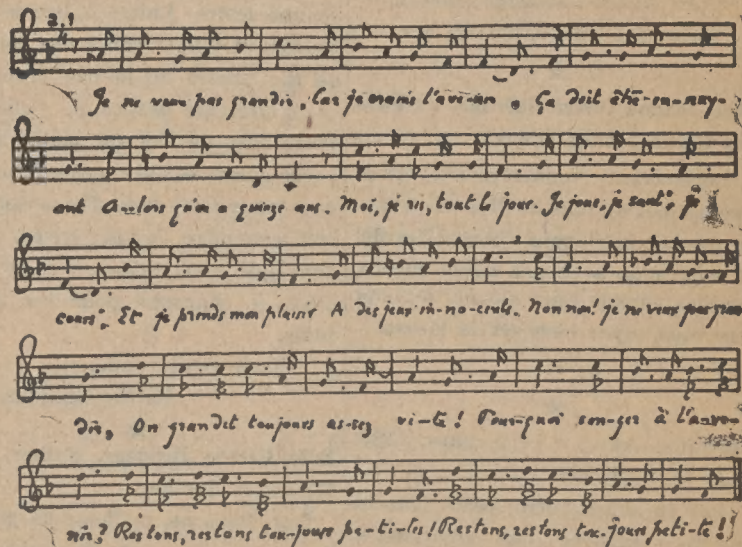 2.1
Je ne veux pas grandir, Car je crains l'ave-nir. Ça doit être-en-nuy-
ant A-lors qu'on a quinze ans. Moi, je ris, tout le jour. Je joue, je saut', je
cours'. Et je prends mon plaisir A des jeux in-no-cents. Non non! je ne veux pas gran
dir, On grandit toujours as-sez vi-te! Pour-quoi son-ger à l'a-ve-
nir? Restons, restons tou-jours pe-ti-tes! Restons, restons tou-jours peti-te!